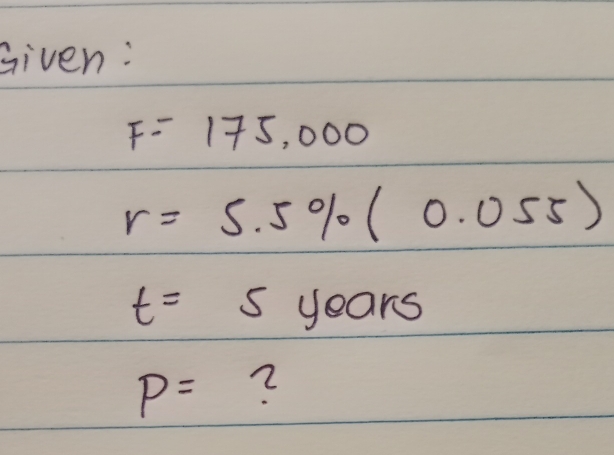 Given:
F= 175,000
r= 5.5% ( 0.055)
t= 5 years
P= ?